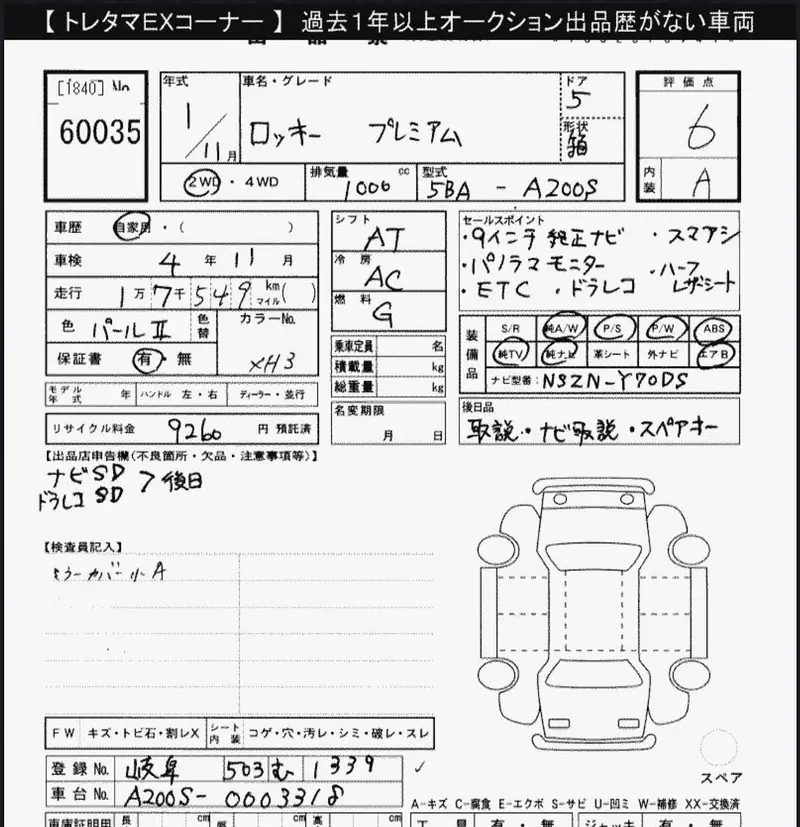 【 トレタマEXコーナー 】 過去1年以上オークション出品歴がない車両
[1840] No.
60035
年式
1/11月
車名・グレード
ロッキー プレミアム
ドア
5
形状
箱
評価点
6
内装
A
2WD・4WD
排気量 1000 cc
型式
5BA - A200S
車歴 自家用・( )
車検 4年11月
走行 1万7千549km マイル( )
色 パールⅡ 色替
カラーNo.
XH3
保証書 有・無
モデル年式 年 ハンドル 左・右 ディーラー・並行
リサイクル料金 9260円 預託済
シフト
AT
冷房
AC
燃料
G
乗車定員 名
積載量 kg
総重量 kg
名変期限
月 日
セールスポイント
・9インチ 純正ナビ ・スマアシ
・パノラマモニター ・ハーフ
・ETC ・ドラレコ レザーシート
装備品
S/R 純A/W P/S P/W ABS
純TV 純ナビ 革シート 外ナビ エアB
ナビ型番: NSZN-Y70DS
後日品
取説・ナビ取説・スペアキー
【出品店申告欄(不良箇所・欠品・注意事項等)】
ナビSD
ドラレコ SD > 後日
【検査員記入】
ミラーカバー小A
FW キズ・トビ石・割レX シート内装 コゲ・穴・汚レ・シミ・破レ・スレ
登録No. 岐阜 503 む 1339 ✓
車台No. A200S-0003318
スペア
A-キズ C-腐食 E-エクボ S-サビ U-凹ミ W-補修 XX-交換済
車庫証明用 長 cm 幅 cm 高 cm
工具 有・無 ジャッキ 有・無